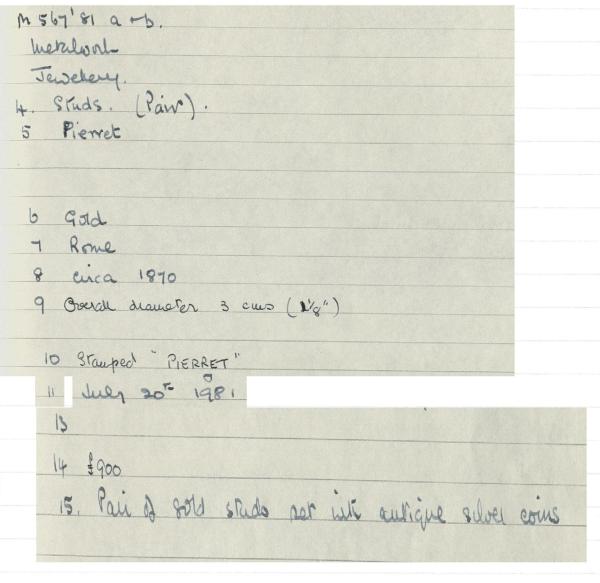 M 567'81 a + b.
Metalwork
Jewellery.
4. Studs. (Pair).
5 Pierret
6 Gold
7 Rome
8 circa 1870
9 Overall diameter 3 cms (1⅛")
10 Stamped "PIERRET"
11 July 20th 1981
13
14 £900
15. Pair of gold studs set with antique silver coins